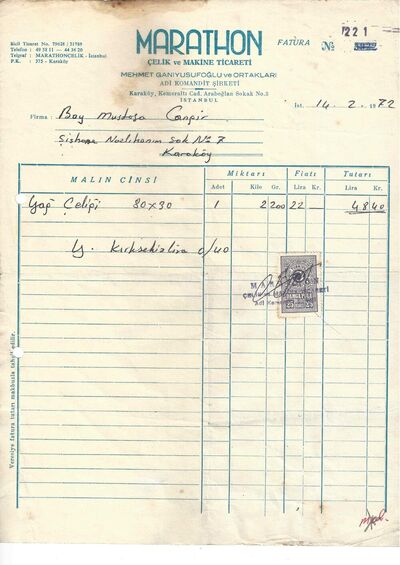 Sicil Ticaret No. 79628 / 21789
Telefon : 49 38 11 — 44 36 20
Telgraf : MARATHONÇELİK - İstanbul
P.K. : 375 - Karaköy
MARATHON
ÇELİK ve MAKİNE TİCARETİ
MEHMET GANİYUSUFOĞLU ve ORTAKLARI
ADİ KOMANDİT ŞİRKETİ
Karaköy, Kemeraltı Cad. Araboğlan Sokak No.3
İSTANBUL
FATURA
№
221
İst. 14. 2. 1972
Firma : Bay Mustafa
Şişhane Nazlıhanım Sok No 7
Karaköy
MALIN CİNSİ
Miktarı
Fiatı
Tutarı
Adet
Kilo
Gr.
Lira
Kr.
Lira
Kr.
Yağ Çeliği 30x30 1 2 200 22 — 48 40
Y. Kırksekizlira 0/40
MARATHON
Adi
Vereseye fatura tutarı makbuzla tahsil edilir.